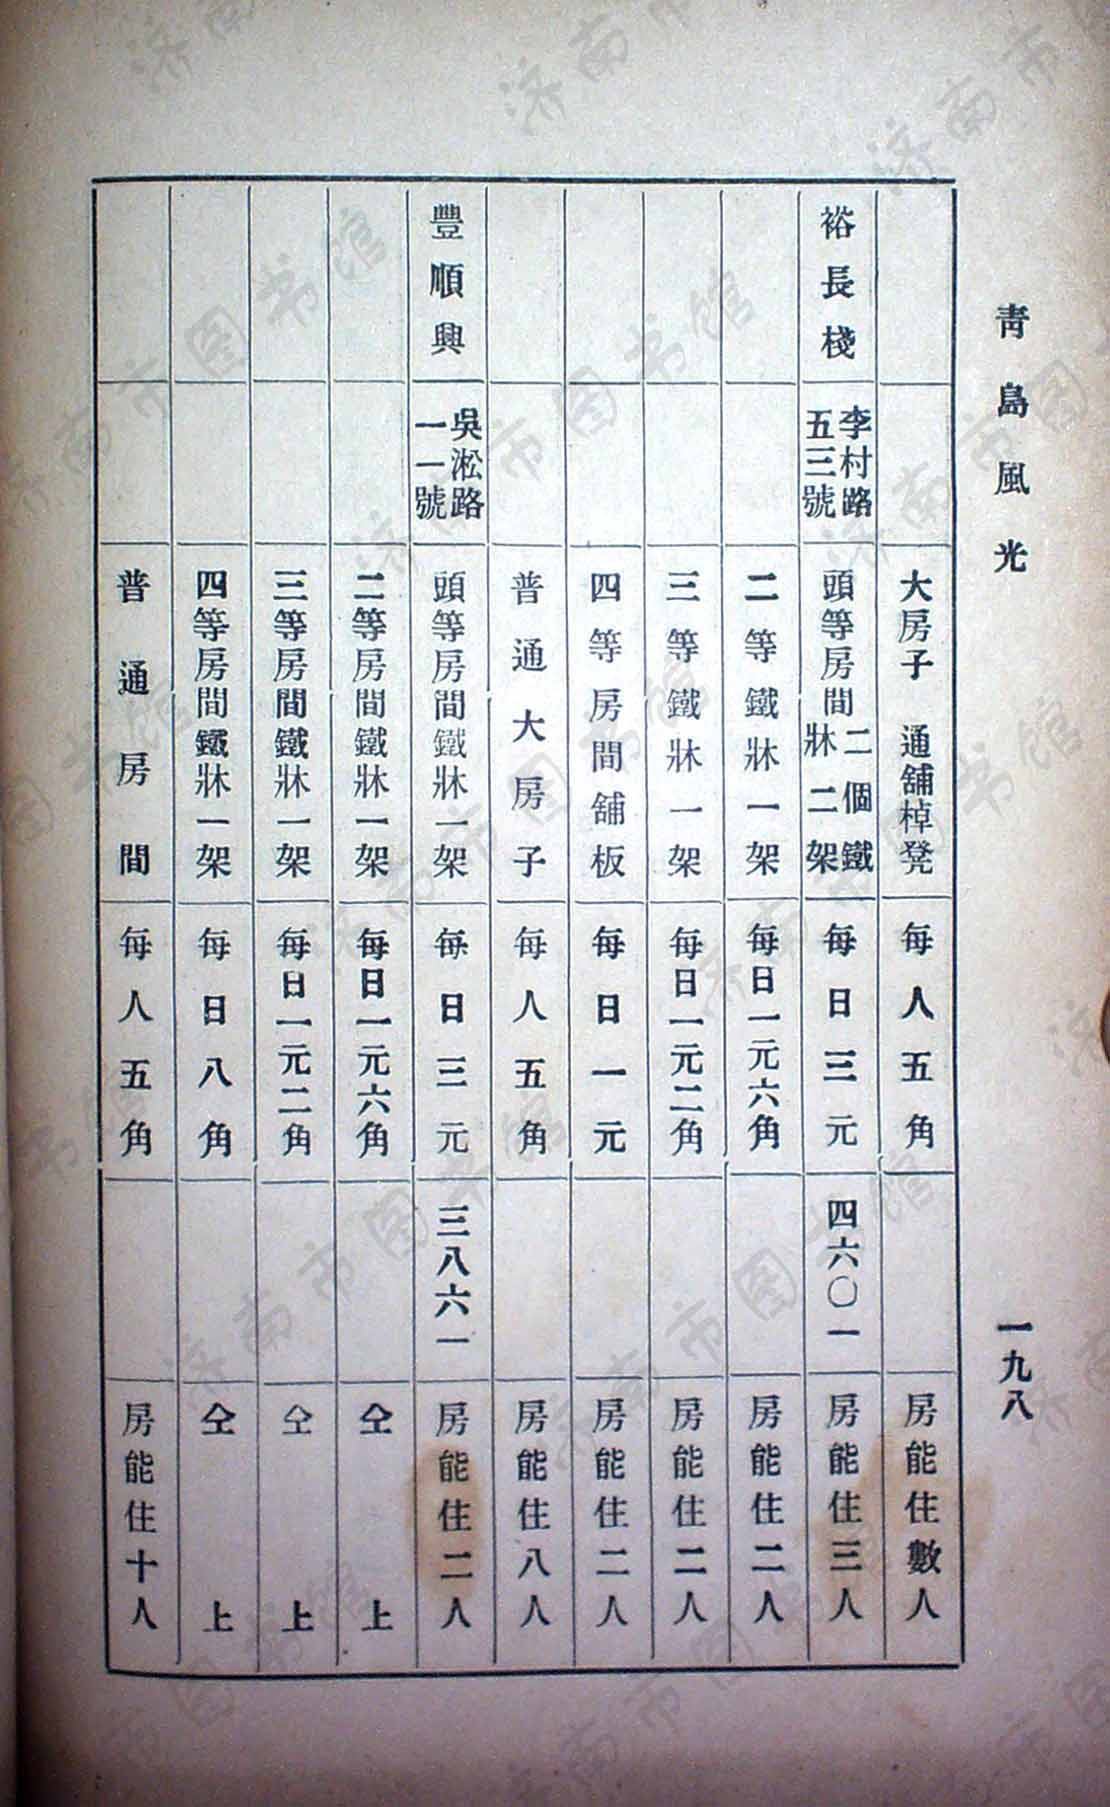 青島風光
一九八
大房子 通舖棹凳 每人五角 房能住數人
裕長棧 李村路五三號 頭等房間二個鐵牀二架 每日三元 四六〇一 房能住三人
二等鐵牀一架 每日一元六角 房能住二人
三等鐵牀一架 每日一元二角 房能住二人
四等房間舖板 每日一元 房能住二人
普通大房子 每人五角 房能住八人
豐順興 吳淞路一一號 頭等房間鐵牀一架 每日三元 三八六一 房能住二人
二等房間鐵牀一架 每日一元六角 仝上
三等房間鐵牀一架 每日一元二角 仝上
四等房間鐵牀一架 每日八角 仝上
普通房間 每人五角 房能住十人
济南市图书馆